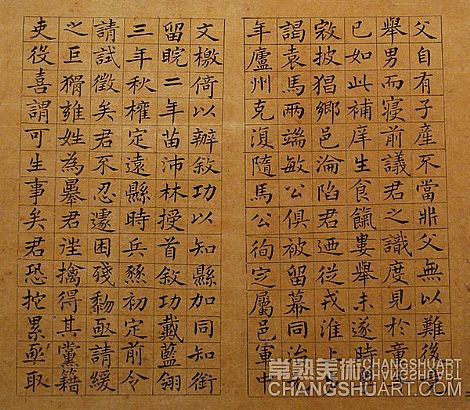 父自有子產不當非父無以難後
舉男而寢前議君之識度見於童
已如此補庠生食餼婁舉未遂時
寇披猖鄉邑淪陷君迺從戎淮上
謁袁馬兩端敏公俱被留幕同治
年廬州克復隨馬公徇定屬邑軍中
文檄倚以辦敘功以知縣加同知銜
留皖二年苗沛林授首敘功戴藍翎
三年秋榷定遠縣時兵燹初定前令
請試徵矣君不忍遽困殘黎亟請緩
之巨猾雍姓為摹君擒得其黨籍
吏役喜謂可生事矣君恐拕累亟取
常熟美術 CHANGSHUART
CHANGSHUART.COM